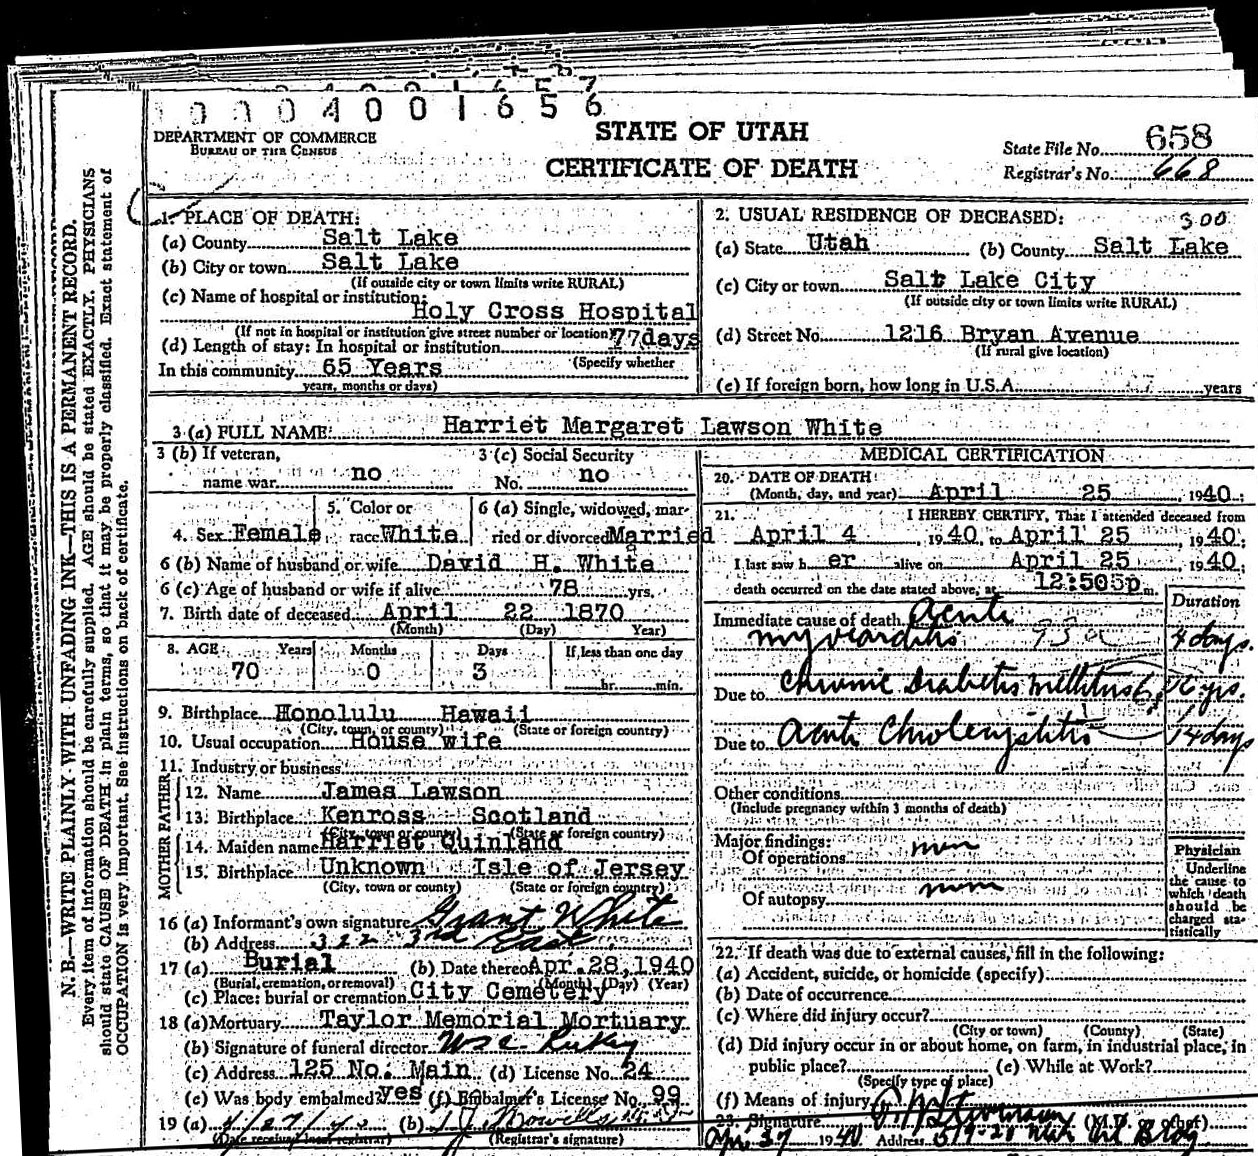 0004001656
DEPARTMENT OF COMMERCE
BUREAU OF THE CENSUS
STATE OF UTAH
CERTIFICATE OF DEATH
State File No. 658
Registrar's No. 668
N. B.—WRITE PLAINLY WITH UNFADING INK—THIS IS A PERMANENT RECORD.
Every item of information should be carefully supplied. AGE should be stated EXACTLY. PHYSICIANS
should state CAUSE OF DEATH in plain terms, so that it may be properly classified. Exact statement of
OCCUPATION is very important. See instructions on back of certificate.
1. PLACE OF DEATH:
(a) County Salt Lake
(b) City or town Salt Lake
(If outside city or town limits write RURAL)
(c) Name of hospital or institution:
Holy Cross Hospital
(If not in hospital or institution give street number or location)
(d) Length of stay: In hospital or institution 77days
(Specify whether
In this community 65 Years
years, months or days)
2. USUAL RESIDENCE OF DECEASED: 300
(a) State Utah (b) County Salt Lake
(c) City or town Salt Lake City
(If outside city or town limits write RURAL)
(d) Street No. 1216 Bryan Avenue
(If rural give location)
(e) If foreign born, how long in U.S.A. years
3 (a) FULL NAME: Harriet Margaret Lawson White
3 (b) If veteran,
name war no
3 (c) Social Security
No. no
4. Sex Female
5. Color or
race White
6 (a) Single, widowed, mar-
ried or divorced Married
6 (b) Name of husband or wife David H. White
6 (c) Age of husband or wife if alive 78 yrs.
7. Birth date of deceased April 22 1870
(Month) (Day) Year)
8. AGE Years Months Days If less than one day
70 0 3 hr. min.
9. Birthplace Honolulu Hawaii
(City, town, or county) (State or foreign country)
10. Usual occupation House wife
11. Industry or business
FATHER
12. Name James Lawson
13. Birthplace Kenross Scotland
(City, town or county) (State or foreign country)
MOTHER
14. Maiden name Harriet Quinland
15. Birthplace Unknown Isle of Jersey
(City, town or county) (State or foreign country)
16 (a) Informant's own signature Grant White
(b) Address 322 3rd East
17 (a) Burial (b) Date thereof Apr. 28, 1940
(Burial, cremation, or removal) (Month) (Day) (Year)
(c) Place: burial or cremation City Cemetery
18 (a) Mortuary Taylor Memorial Mortuary
(b) Signature of funeral director
(c) Address 125 No. Main (d) License No. 24
(e) Was body embalmed? yes (f) Embalmer's License No. 99
19 (a) 4/27/40 (b)
(Date received local registrar) (Registrar's signature)
MEDICAL CERTIFICATION
20. DATE OF DEATH
(Month, day, and year) April 25, 1940:
21. I HEREBY CERTIFY, That I attended deceased from
April 4, 1940, to April 25, 1940:
I last saw h er alive on April 25, 1940:
death occurred on the date stated above, at 12:505p m.
Duration
Immediate cause of death Acute
myocarditis 93a 4 days.
Due to Chronic Diabetes Mellitus yrs.
Due to Acute Cholecystitis 14 days
Other conditions
(Include pregnancy within 3 months of death)
Major findings:
Of operations none
Of autopsy none
Physician
Underline
the cause to
which death
should be
charged sta-
tistically
22. If death was due to external causes, fill in the following:
(a) Accident, suicide, or homicide (specify)
(b) Date of occurrence
(c) Where did injury occur?
(City or town) (County) (State)
(d) Did injury occur in or about home, on farm, in industrial place, in
public place? (e) While at Work?
(Specify type of place)
(f) Means of injury
23. Signature (M.D. or other)
1940 Address Bldg.